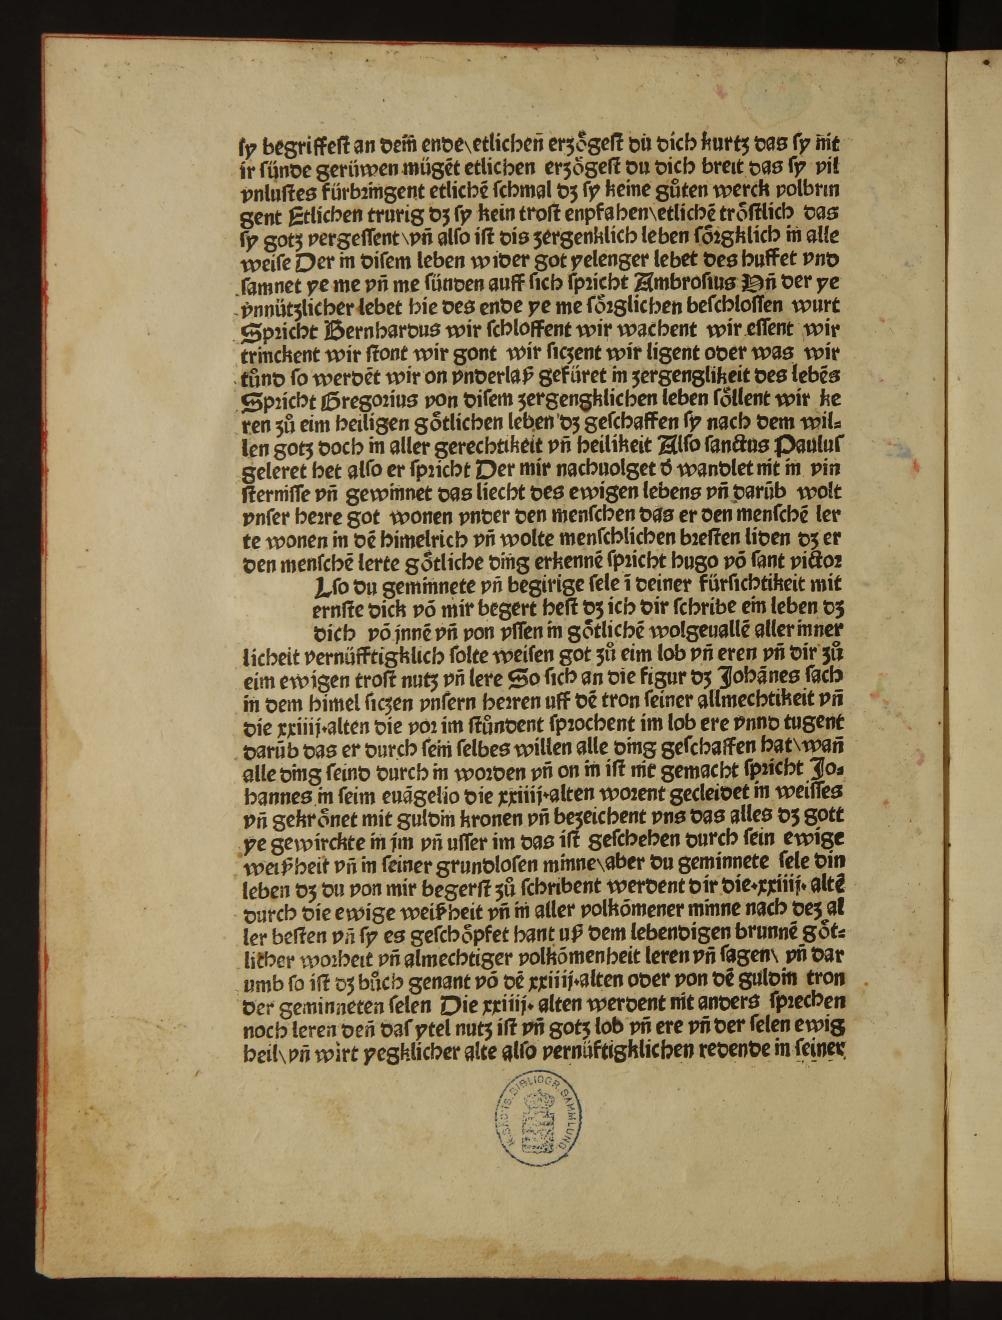 ſy begriffeſt an dem̃ ende\etlichen̄ erzoͤgeſt du dich kurtz das ſy nit
ir ſünde gerüwen mügēt etlichen erzoͤgeſt du dich breit das ſy vil
vnluſtes fürbringent etlichē ſchmal dz ſy keine gůten werck volbrin
gent Etlichen trurig dz ſy kein troſt enpfahen\etlichē troͤſtlich das
ſy gotz vergeſſent\vn̄ alſo iſt dis zergenklich leben ſoꝛgklich in alle
weiſe Der in diſem leben wider got yelenger lebet des huffet vnd
ſamnet ye me vn̄ me ſünden auff ſich ſpꝛicht Ambroſius Vn̄ der ye
vnnützlicher lebet hie des ende ye me ſoꝛglichen beſchloſſen wurt
Spꝛicht Bernhardus wir ſchloffent wir wachent wir eſſent wir
trinckent wir ſtont wir gont wir ſiczent wir ligent oder was wir
tůnd ſo werdēt wir on vnderlaß gefüret in zergenglikeit des lebēs
Spꝛicht Gregorius von diſem zergengklichen leben ſoͤllent wir ke
ren zů eim heiligen goͤtlichen leben dz geſchaffen ſy nach dem wil⸗
len gotz doch in aller gerechtikeit vn̄ heilikeit Alſo ſanctus Paulus
geleret het alſo er ſpꝛicht Der mir nachuolget d̄ wandlet nit in vin
ſterniſſe vn̄ gewinnet das liecht des ewigen lebens vn̄ darūb wolt
vnſer heꝛre got wonen vnder den menſchen das er den menſchē ler
te wonen in dē himelrich vn̄ wolte menſchlichen bꝛeſten liden dz er
den menſchē lerte goͤtliche ding erkennē ſpꝛicht hugo vō ſant victoꝛ
Lſo du geminnete vn̄ begirige ſele ī deiner fürſichtikeit mit
ernſte dick vō mir begert heſt dz ich dir ſchribe ein leben dz
dich vō jnnē vn̄ von vſſen in goͤtlichē wolgeuallē aller inner
licheit vernüfftigklich ſolte weiſen got zů eim lob vn̄ eren vn̄ dir zů
eim ewigen troſt nutz vn̄ lere So ſich an die figur dz Johānes ſach
in dem himel ſiczen vnſern herren uff dē tron ſeiner allmechtikeit vn̄
die xxiiij.alten die voꝛ im ſtůndent ſpꝛochent im lob ere vnnd tugent
darūb das er durch ſein ſelbes willen alle ding geſchaffen hat\wan̄
alle ding ſeind durch in woꝛden vn̄ on in iſt nit gemacht ſpꝛicht Jo⸗
hannes in ſeim euāgelio die xxiiij.alten woꝛent gecleidet in weiſſes
vn̄ gekroͤnet mit guldin kronen vn̄ bezeichent vns das alles dz gott
ye gewirckte in jm vn̄ uſſer im das iſt geſchehen durch ſein ewige
weißheit vn̄ in ſeiner grundloſen minne\aber du geminnete ſele din
leben dz du von mir begerſt zů ſchribent werdent dir die.xxiiij. altē
durch die ewige weißheit vn̄ in aller volkōmener minne nach dez al
ler beſten vn̄ ſy es geſchoͤpfet hant uß dem lebendigen brunnē goͤt⸗
licher woꝛheit vn̄ almechtiger volkōmenheit leren vn̄ ſagen\ vn̄ dar
umb ſo iſt dz bůch genant vō dē xxiiij.alten oder von dē guldin tron
der geminneten ſelen Die xxiiij. alten werdent nit anders ſpꝛechen
noch leren den̄ daſ ytel nutz iſt vn̄ gotz lob vn̄ ere vn̄ der ſelen ewig
heil\vn̄ wirt yegklicher alte alſo vernüftigklichen redende in ſeiner
K. SÄCHS. BIBLIOGR. SAMMLUNG